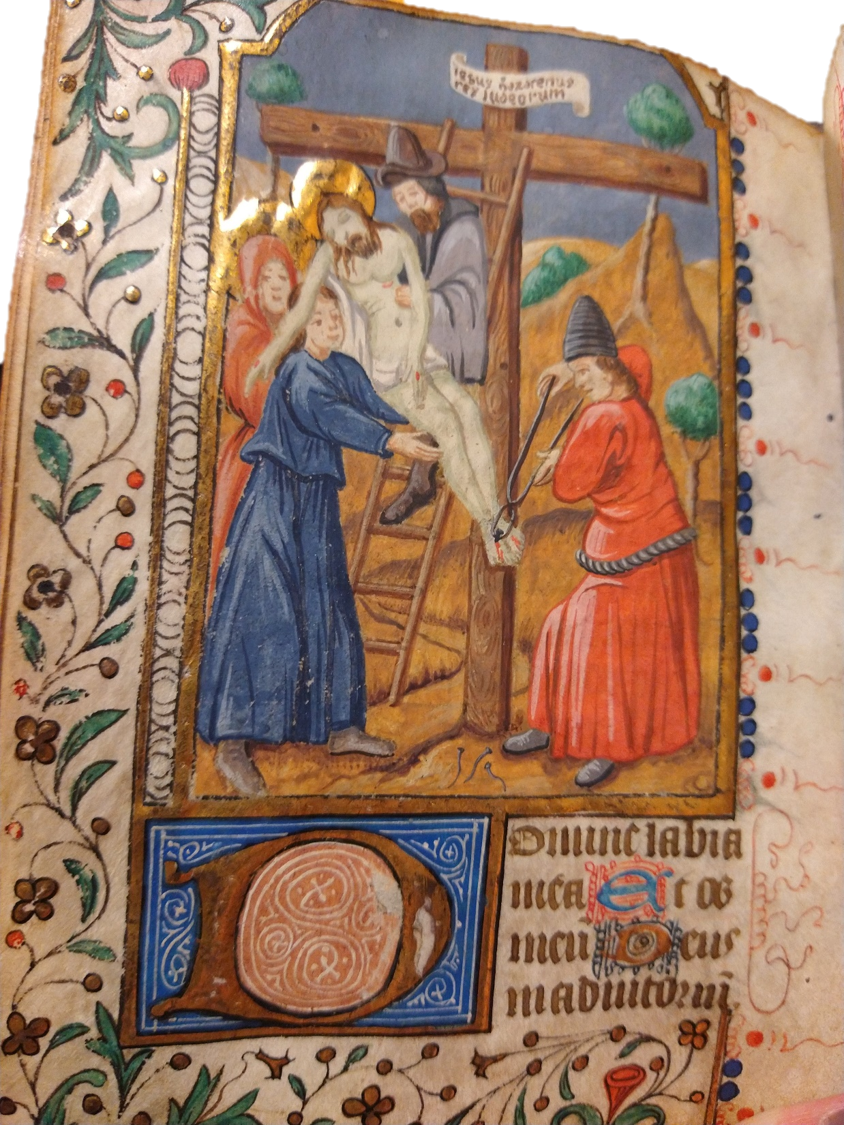 iesus nazarenus
rex iudeorum
Domine labia
mea Et os
meu Deus
in adiutoriū